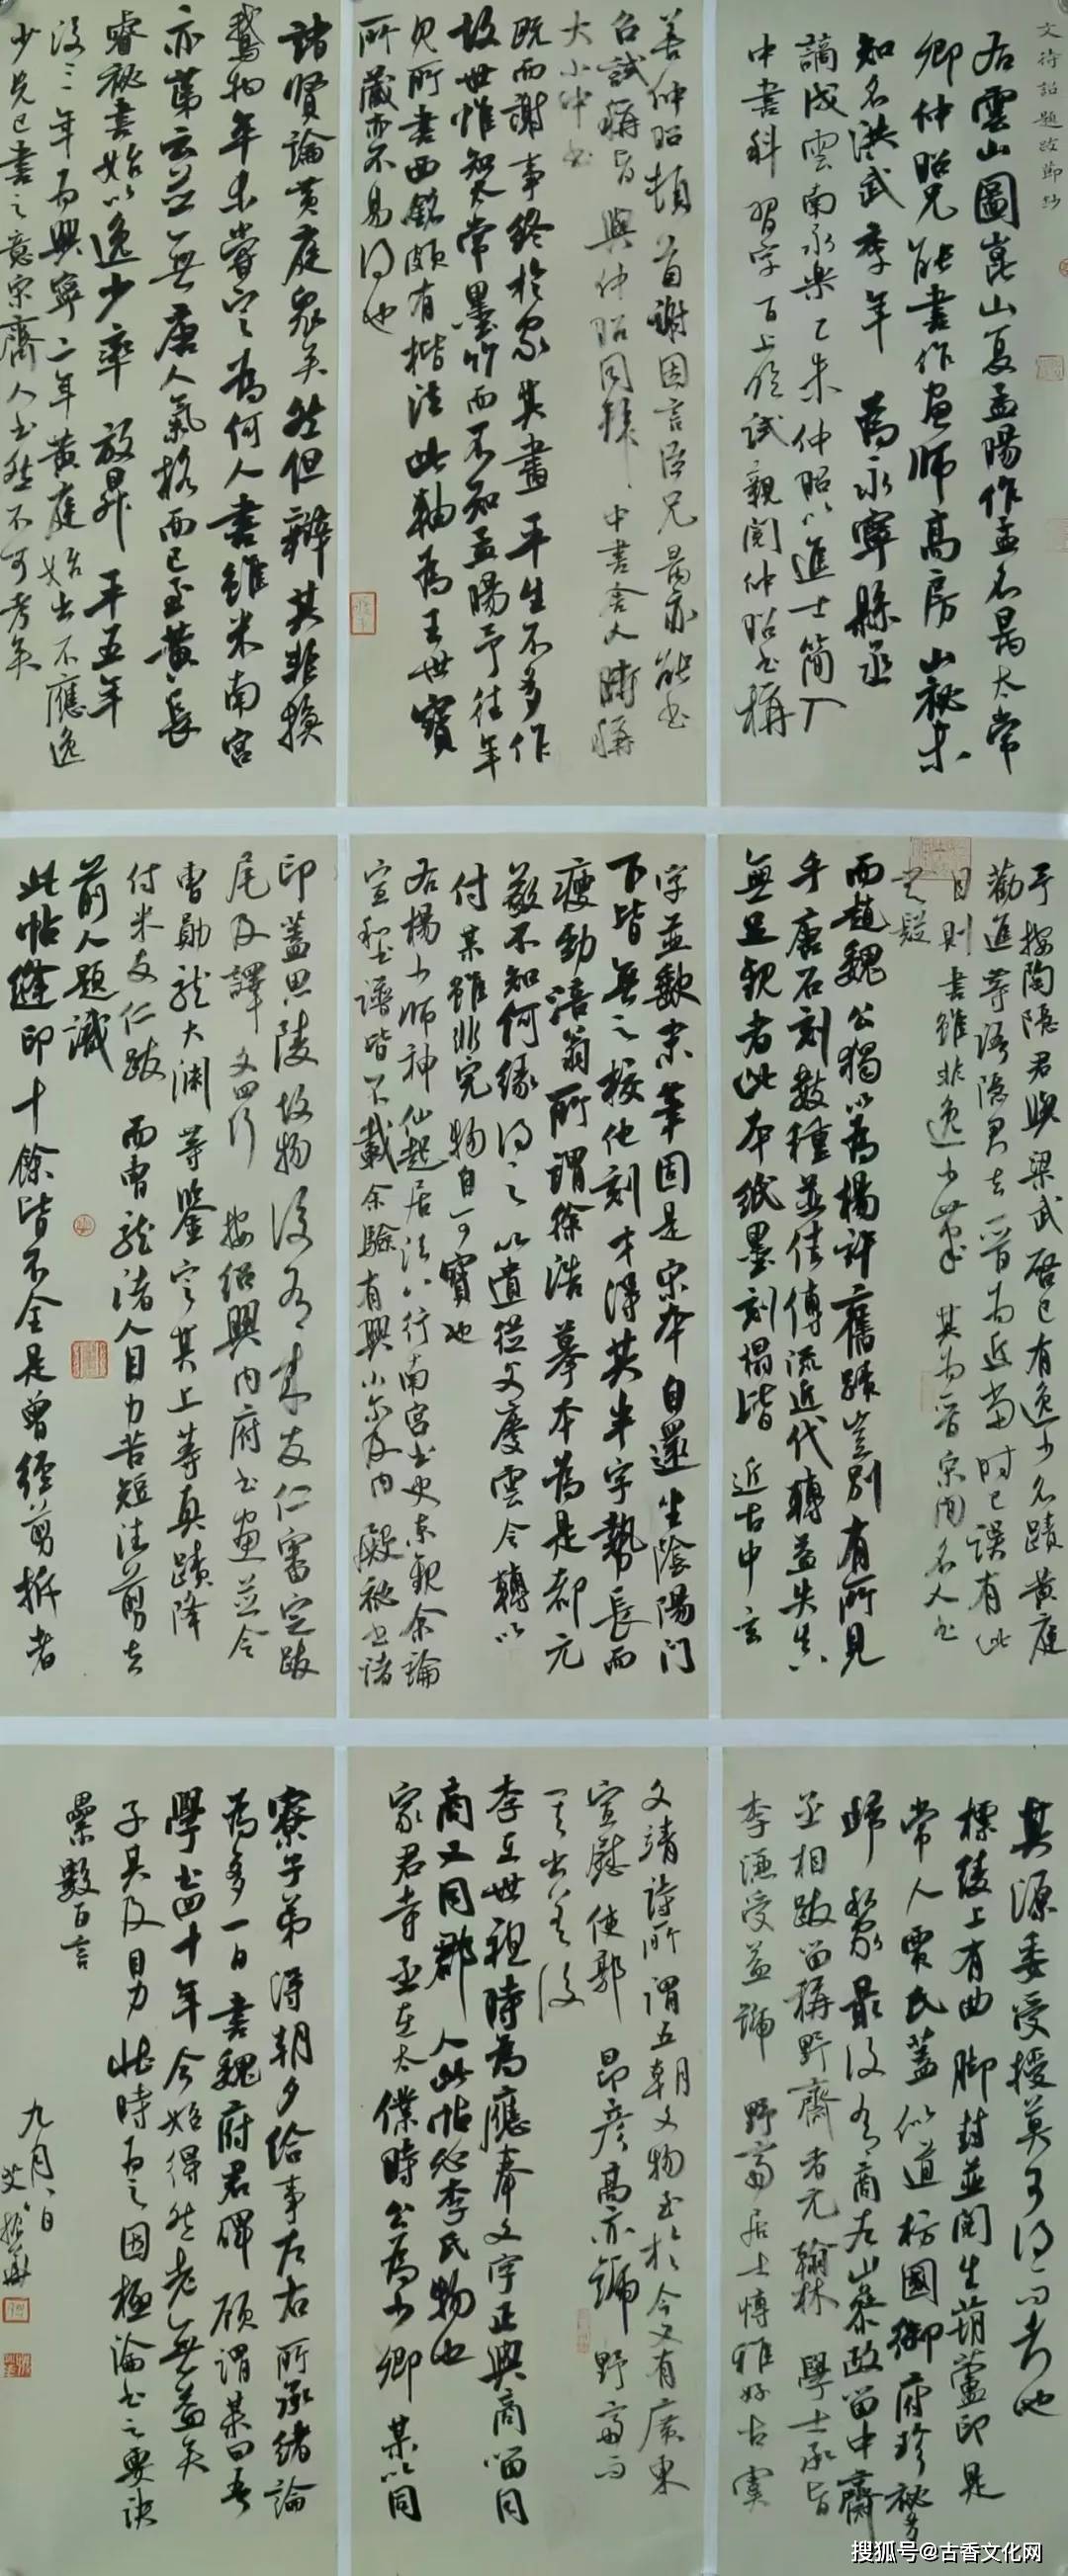 文待詔題跋節抄
右雲山圖崑山夏孟暘作孟名昺太常
卿仲昭兄能書作畫師高房山秘未
知名洪武季年為永寧縣丞
謫戍雲南永樂乙未仲昭以進士簡入
中書科習字百上臨試親閱仲昭書稱
善仲昭頓首謝因言臣兄昺亦能書
召試稱旨與仲昭同拜中書舍人時稱
大小中書
既而謝事終於家其畫平生不多作
故世惟知太常墨竹而不知孟暘予往年
見所書西銘頗有楷法此軸為王世寶
所藏亦不易得也
諸賢論黃庭眾矣然但辯其非換
鵝物年未嘗定為何人書雖米南宮
亦第云並無唐人氣格而已至黃長
睿秘書始以逸少卒放昇平五年
後三年為興寧二年黃庭始出不應逸
少先已書之意宋齊人書然不可考矣
予按陶隱君與梁武啟已有逸少名蹟黃庭
勸進等語隱君去晉為近當時已誤有此
目則書雖非逸少筆其為晉宋間名人書
無疑
而趙魏公獨以為楊許舊蹟豈別有所見
乎唐石刻數種並佳傳流近代轉益失真
無足觀者此本紙墨刻搨皆近古中言
字並歉末筆固是宋本自還坐陰陽門
下皆無之校他刻才得其半字勢長而
瘦勁涪翁所謂徐浩摹本為是都元
敬不知何緣得之以遺從父慶雲令轉以
付某雖非完物自可寶也
右楊少師神仙起居法八行南宮書史東觀余論
宣和書譜皆不載余驗有興小印及內殿秘書諸
印蓋思陵故物後有米友仁審定跋
尾及譯文四行按紹興內府書畫並令
曹勛龍大淵等鑒定其上等真蹟降
付米友仁跋而曹龍諸人目力苦短法剪去
前人題識
此帖縫印十餘皆不全是曾經剪拆者
其源委受授莫可得而考也
標綾上有曲腳封並閱生葫蘆印是
常人賈氏蓋似道枋國御府珍秘多
歸私家最後有商左山參政留中齋
丞相跋留稱野齋者元翰林學士承旨
李謙受益號野齋居士博雅好古虞
文靖詩所謂五朝文物至於今又有廣東
宣慰使郭昂彥高亦號野齋而
李在世祖時為應奉文字正與商留同
商又同郡人此帖必李氏物也
家君寺丞在太僕時公為少卿某以同
寮子弟得朝夕給事左右所承緒論
為多一日書魏府君碑顧謂某曰吾
學書四十年今始得然老無益矣
子其及目力壯時為之因極論書之要訣
累數百言
九月八日